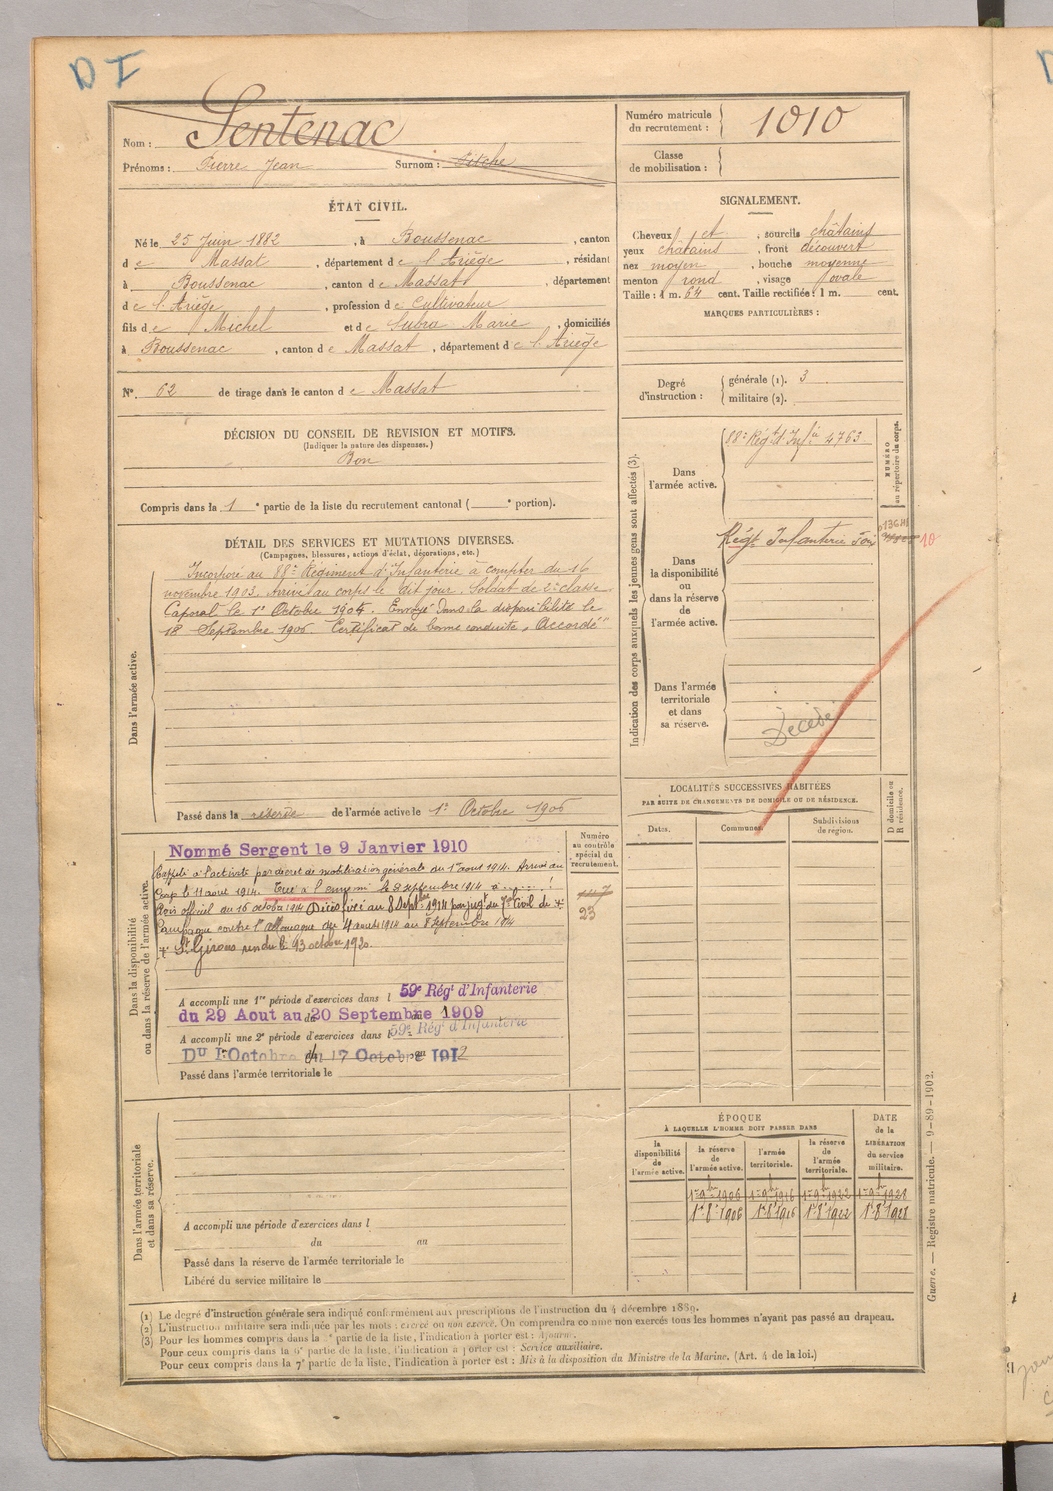 D I
Nom : Sentenac
Prénoms : Pierre Jean Surnom : Sitche
Numéro matricule
du recrutement : 1010
Classe
de mobilisation :
ÉTAT CIVIL.
Né le 25 Juin 1882, à Boussenac, canton
de Massat, département de l'Ariège, résidant
à Boussenac, canton de Massat, département
de l'Ariège, profession de Cultivateur
fils de Michel et de Subra Marie, domiciliés
à Boussenac, canton de Massat, département de l'Ariège
N° 62 de tirage dans le canton de Massat
SIGNALEMENT.
Cheveux et, sourcils châtains
yeux châtains, front découvert
nez moyen, bouche moyenne
menton rond, visage ovale
Taille : 1 m. 64 cent. Taille rectifiée : 1 m. cent.
MARQUES PARTICULIÈRES :
Degré
d'instruction :
générale (1). 3
militaire (2).
DÉCISION DU CONSEIL DE REVISION ET MOTIFS.
(Indiquer la nature des dispenses.)
Bon
Compris dans la 1e partie de la liste du recrutement cantonal ( e portion).
DÉTAIL DES SERVICES ET MUTATIONS DIVERSES.
(Campagnes, blessures, actions d'éclat, décorations, etc.)
Dans l'armée active.
Incorporé au 88e Régiment d'Infanterie à compter du 16
novembre 1903. Arrivé au corps le dit jour. Soldat de 2e classe.
Caporal le 1er Octobre 1904. Envoyé dans la disponibilité le
18 Septembre 1906. Certificat de bonne conduite "Accordé"
Passé dans la réserve de l'armée active le 1er Octobre 1906
Indication des corps auxquels les jeunes gens sont affectés (3).
NUMÉRO
au répertoire du corps.
Dans
l'armée active.
88e Régt d'Infie 4763
Dans
la disponibilité
ou
dans la réserve
de
l'armée active.
Régt Infanterie Foix
10
Dans l'armée
territoriale
et dans
sa réserve.
Décédé
LOCALITÉS SUCCESSIVES HABITÉES
PAR SUITE DE CHANGEMENTS DE DOMICILE OU DE RÉSIDENCE.
Dates.
Communes.
Subdivisions
de région.
D domicile ou
R résidence.
Dans la disponibilité
ou dans la réserve de l'armée active.
Numéro
au contrôle
spécial du
recrutement.
23
Nommé Sergent le 9 Janvier 1910
Rappelé à l'activité par décret de mobilisation générale du 1er août 1914. Arrivé au
Corps le 11 août 1914. Tué à l'ennemi le 8 septembre 1914 à ...... !
Avis officiel du 16 octobre 1914 Décès fixé au 8 Septbre 1914 par jugt du Tal Civil de +
Campagne contre l'Allemagne du 4 août 1914 au 8 septembre 1914
+ St Girons rendu le 13 octobre 1920.
A accompli une 1re période d'exercices dans l 59e Régt d'Infanterie
du 29 Aout au 20 Septembre 1909
A accompli une 2e période d'exercices dans l 59e Régt d'Infanterie
Du 1er Octobre au 17 Octobre 1912
Passé dans l'armée territoriale le
Dans l'armée territoriale
et dans sa réserve.
A accompli une période d'exercices dans l
du au
Passé dans la réserve de l'armée territoriale le
Libéré du service militaire le
ÉPOQUE
À LAQUELLE L'HOMME DOIT PASSER DANS
DATE
de la
LIBÉRATION
du service
militaire.
la
disponibilité
de
l'armée active.
la réserve
de
l'armée active.
l'armée
territoriale.
la réserve
de
l'armée
territoriale.
1er 9bre 1906 1er 9bre 1916 1er 9bre 1922 1er 9bre 1928
1er 8bre 1906 1er 8bre 1916 1er 8bre 1922 1er 8bre 1928
Guerre. — Registre matricule. — 9-89-1902.
(1) Le degré d'instruction générale sera indiqué conformément aux prescriptions de l'instruction du 4 décembre 1889.
(2) L'instruction militaire sera indiquée par les mots : exercé ou non exercé. On comprendra comme non exercés tous les hommes n'ayant pas passé au drapeau.
(3) Pour les hommes compris dans la partie de la liste, l'indication à porter est : Ajourné.
Pour ceux compris dans la 6e partie de la liste, l'indication à porter est : Service auxiliaire.
Pour ceux compris dans la 7e partie de la liste, l'indication à porter est : Mis à la disposition du Ministre de la Marine. (Art. 4 de la loi.)